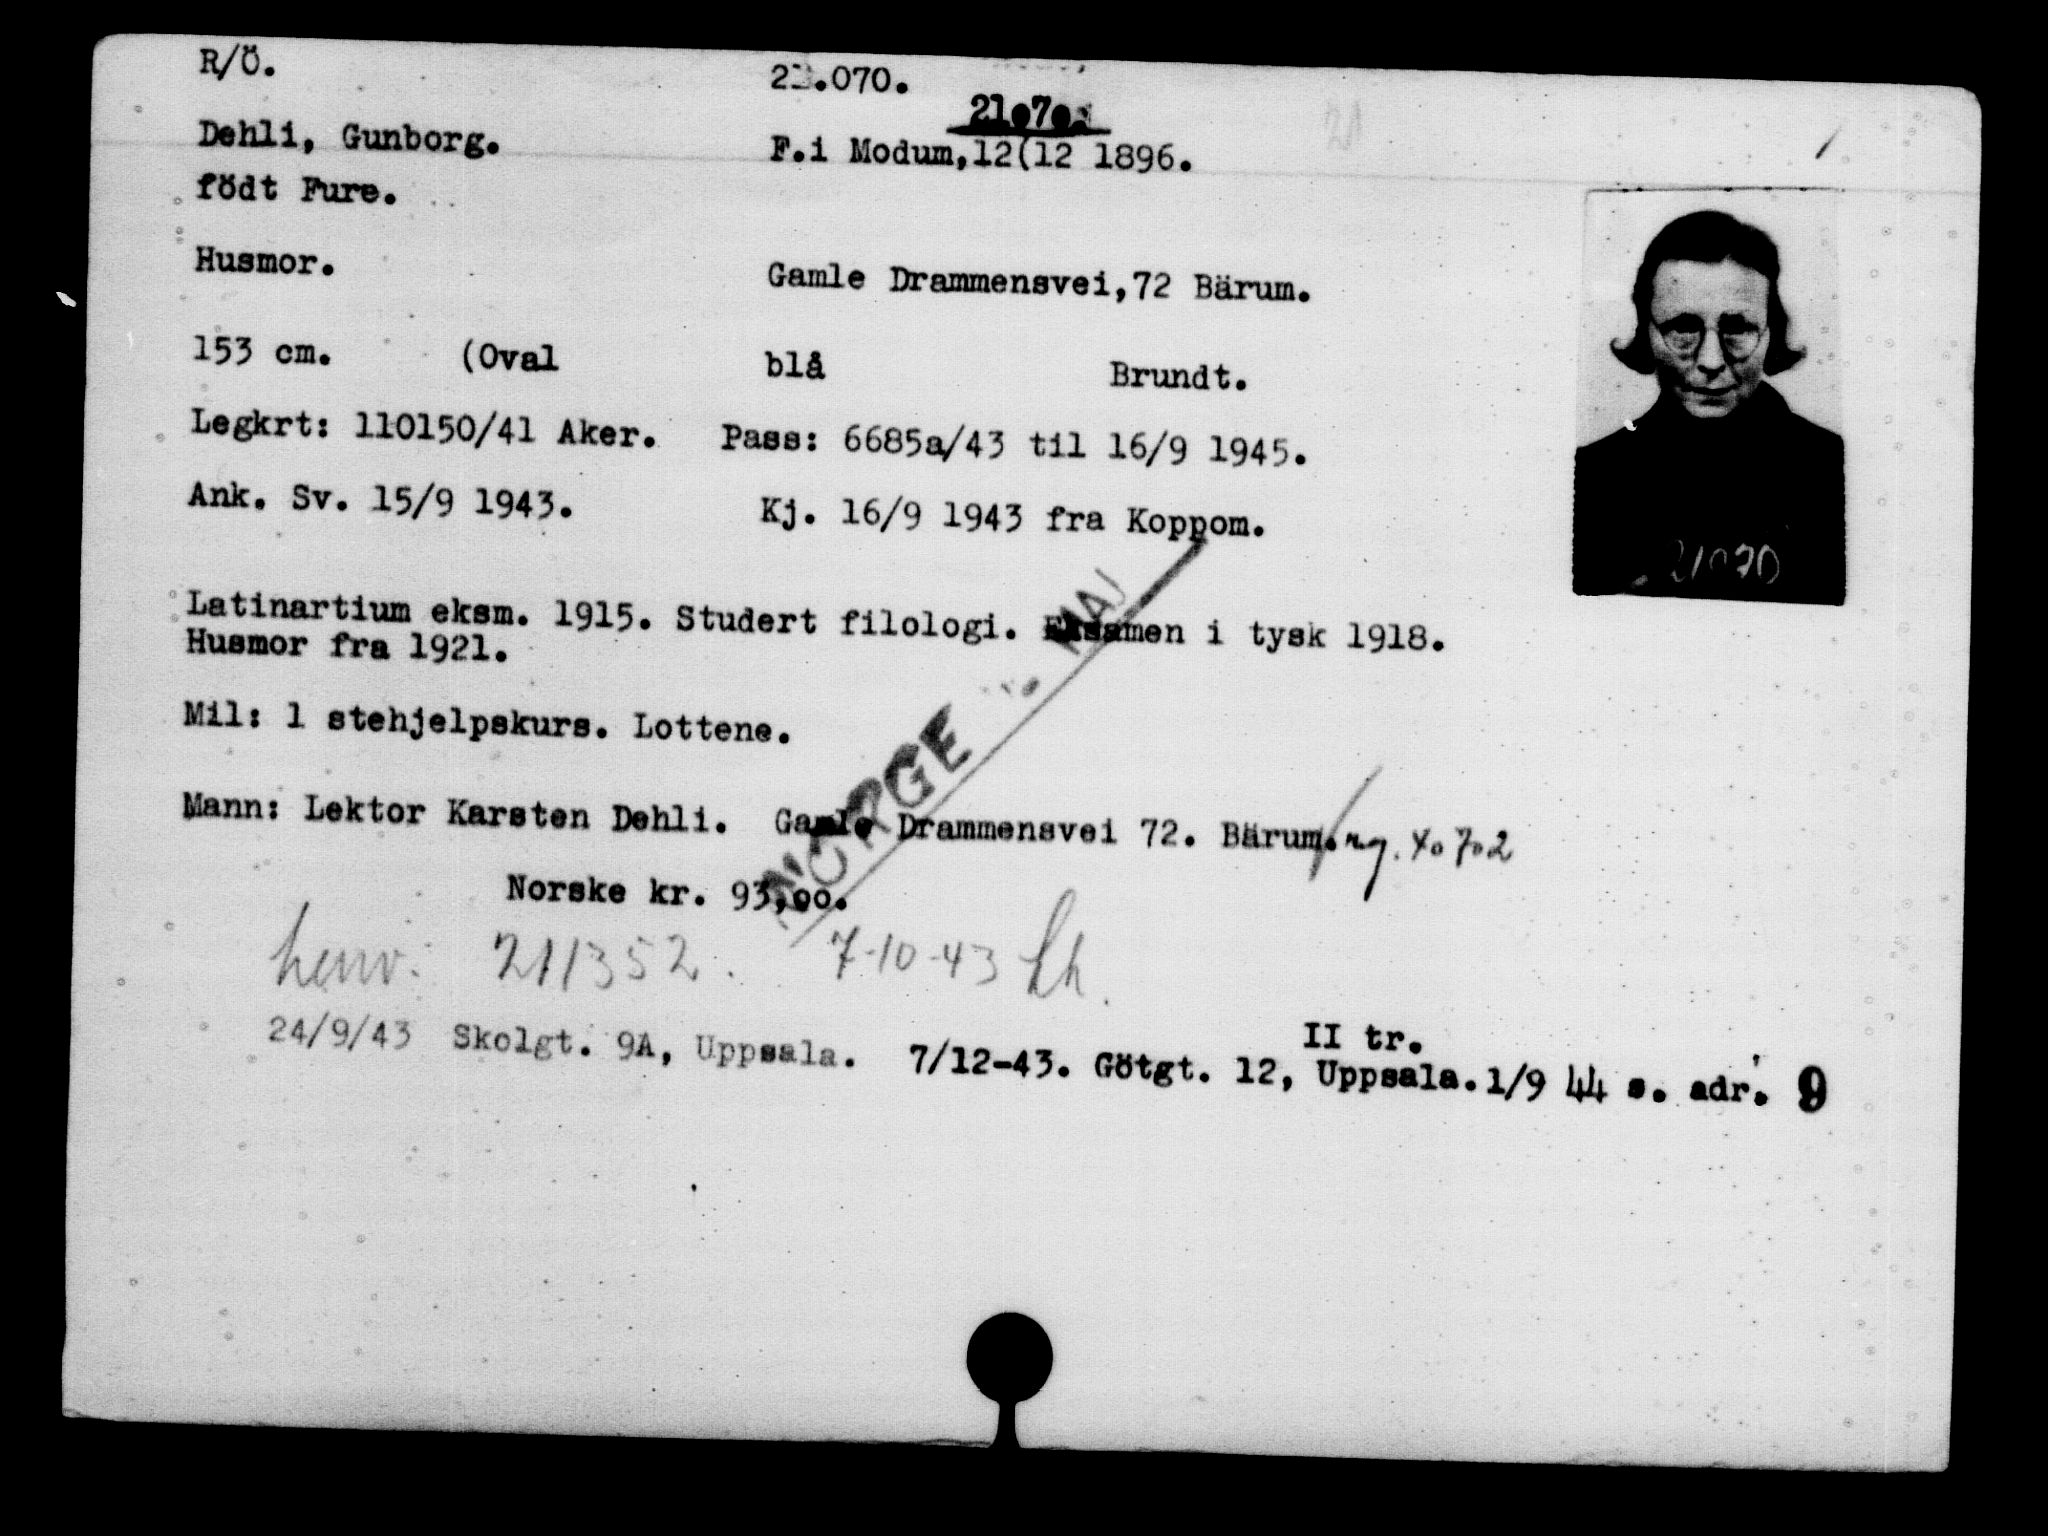 R/Ö.
.070.
21.7.
Dehli, Gunborg.
F.i Modum,12(12 1896.
født Fure.
Husmor.
Gamle Drammensvei,72 Bärum.
153 cm. (Oval blå Brundt.
Legkrt: 110150/41 Aker. Pass: 6685a/43 til 16/9 1945.
Ank. Sv. 15/9 1943. Kj. 16/9 1943 fra Koppom.
21070
Latinartium eksm. 1915. Studert filologi. Eksamen i tysk 1918.
Husmor fra 1921.
Mil: 1 stehjelpskurs. Lottene.
NORGE MAJ
Mann: Lektor Karsten Dehli. Gamle Drammensvei 72. Bärum.
Norske kr. 93,00.
henv: 211352. 7-10-43
24/9/43 Skolgt. 9A, Uppsala. 7/12-43. Götgt. 12, Uppsala. 1/9 44 s. adr. 9
II tr.